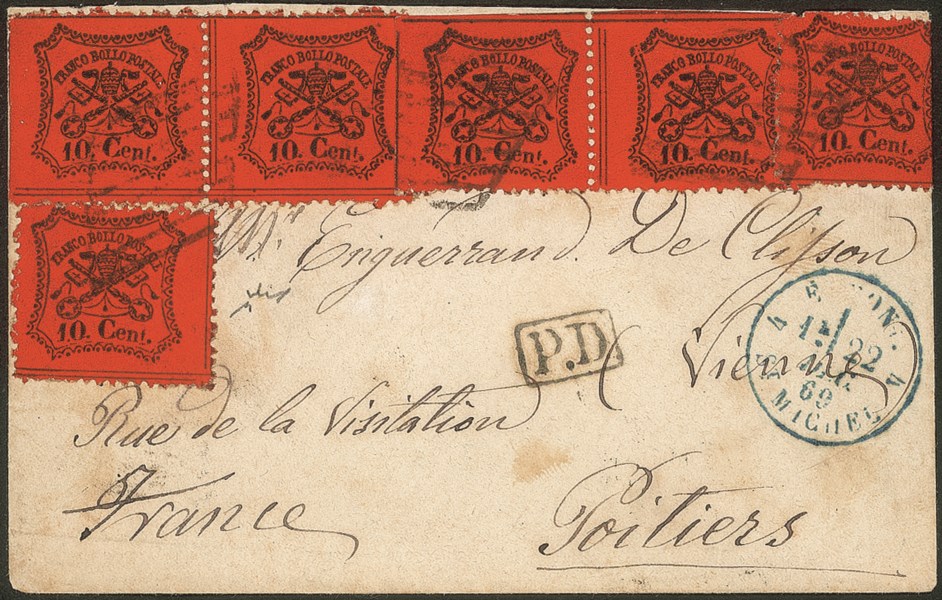 FRANCO BOLLO POSTALE
10. Cent.
FRANCO BOLLO POSTALE
10. Cent.
FRANCO BOLLO POSTALE
10. Cent.
FRANCO BOLLO POSTALE
10. Cent.
FRANCO BOLLO POSTALE
10. Cent.
FRANCO BOLLO POSTALE
10. Cent.
Mr Enguerrand De Clisson
P.D
( Vienne
22
69
MICHEL
Rue de la Visitation
France
Poitiers